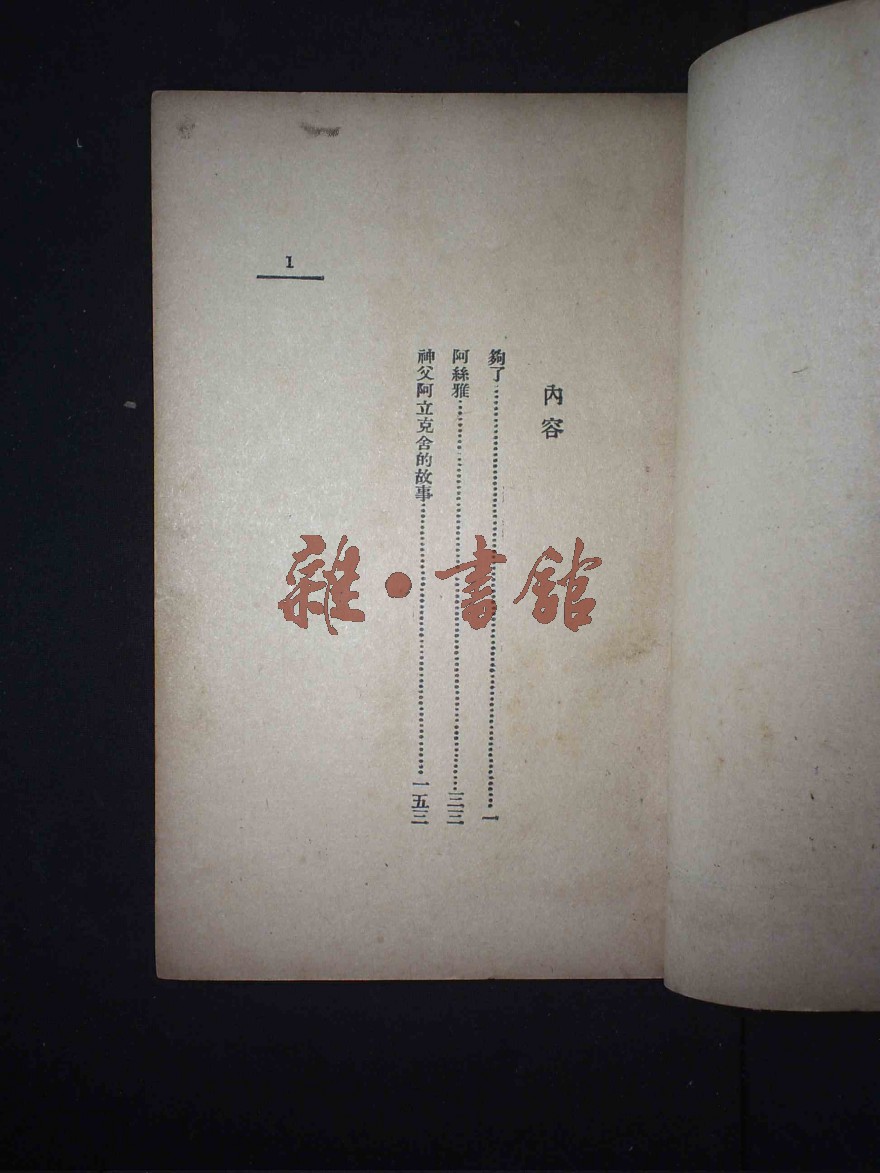 內容
夠了……一
阿絲雅……三三
神父阿立克舍的故事……一五三
1
雜·書館